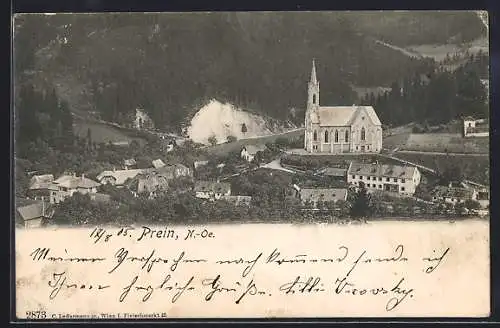 12/8 05. Prein, N.-Oe.
Meiner Versprechen nach kommend sende ich
Ihnen herzliche Grüße. Lilli
2873 C. Ledermann jr., Wien I. Fleischmarkt 12.